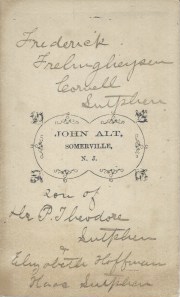 Frederick
Frelingheysen
Cornell
Sutphen
JOHN ALT,
SOMERVILLE,
N. J.
son of
Dr P. Theodore
Sutphen
&
Elizabeth Hoffman
Haas Sutphen